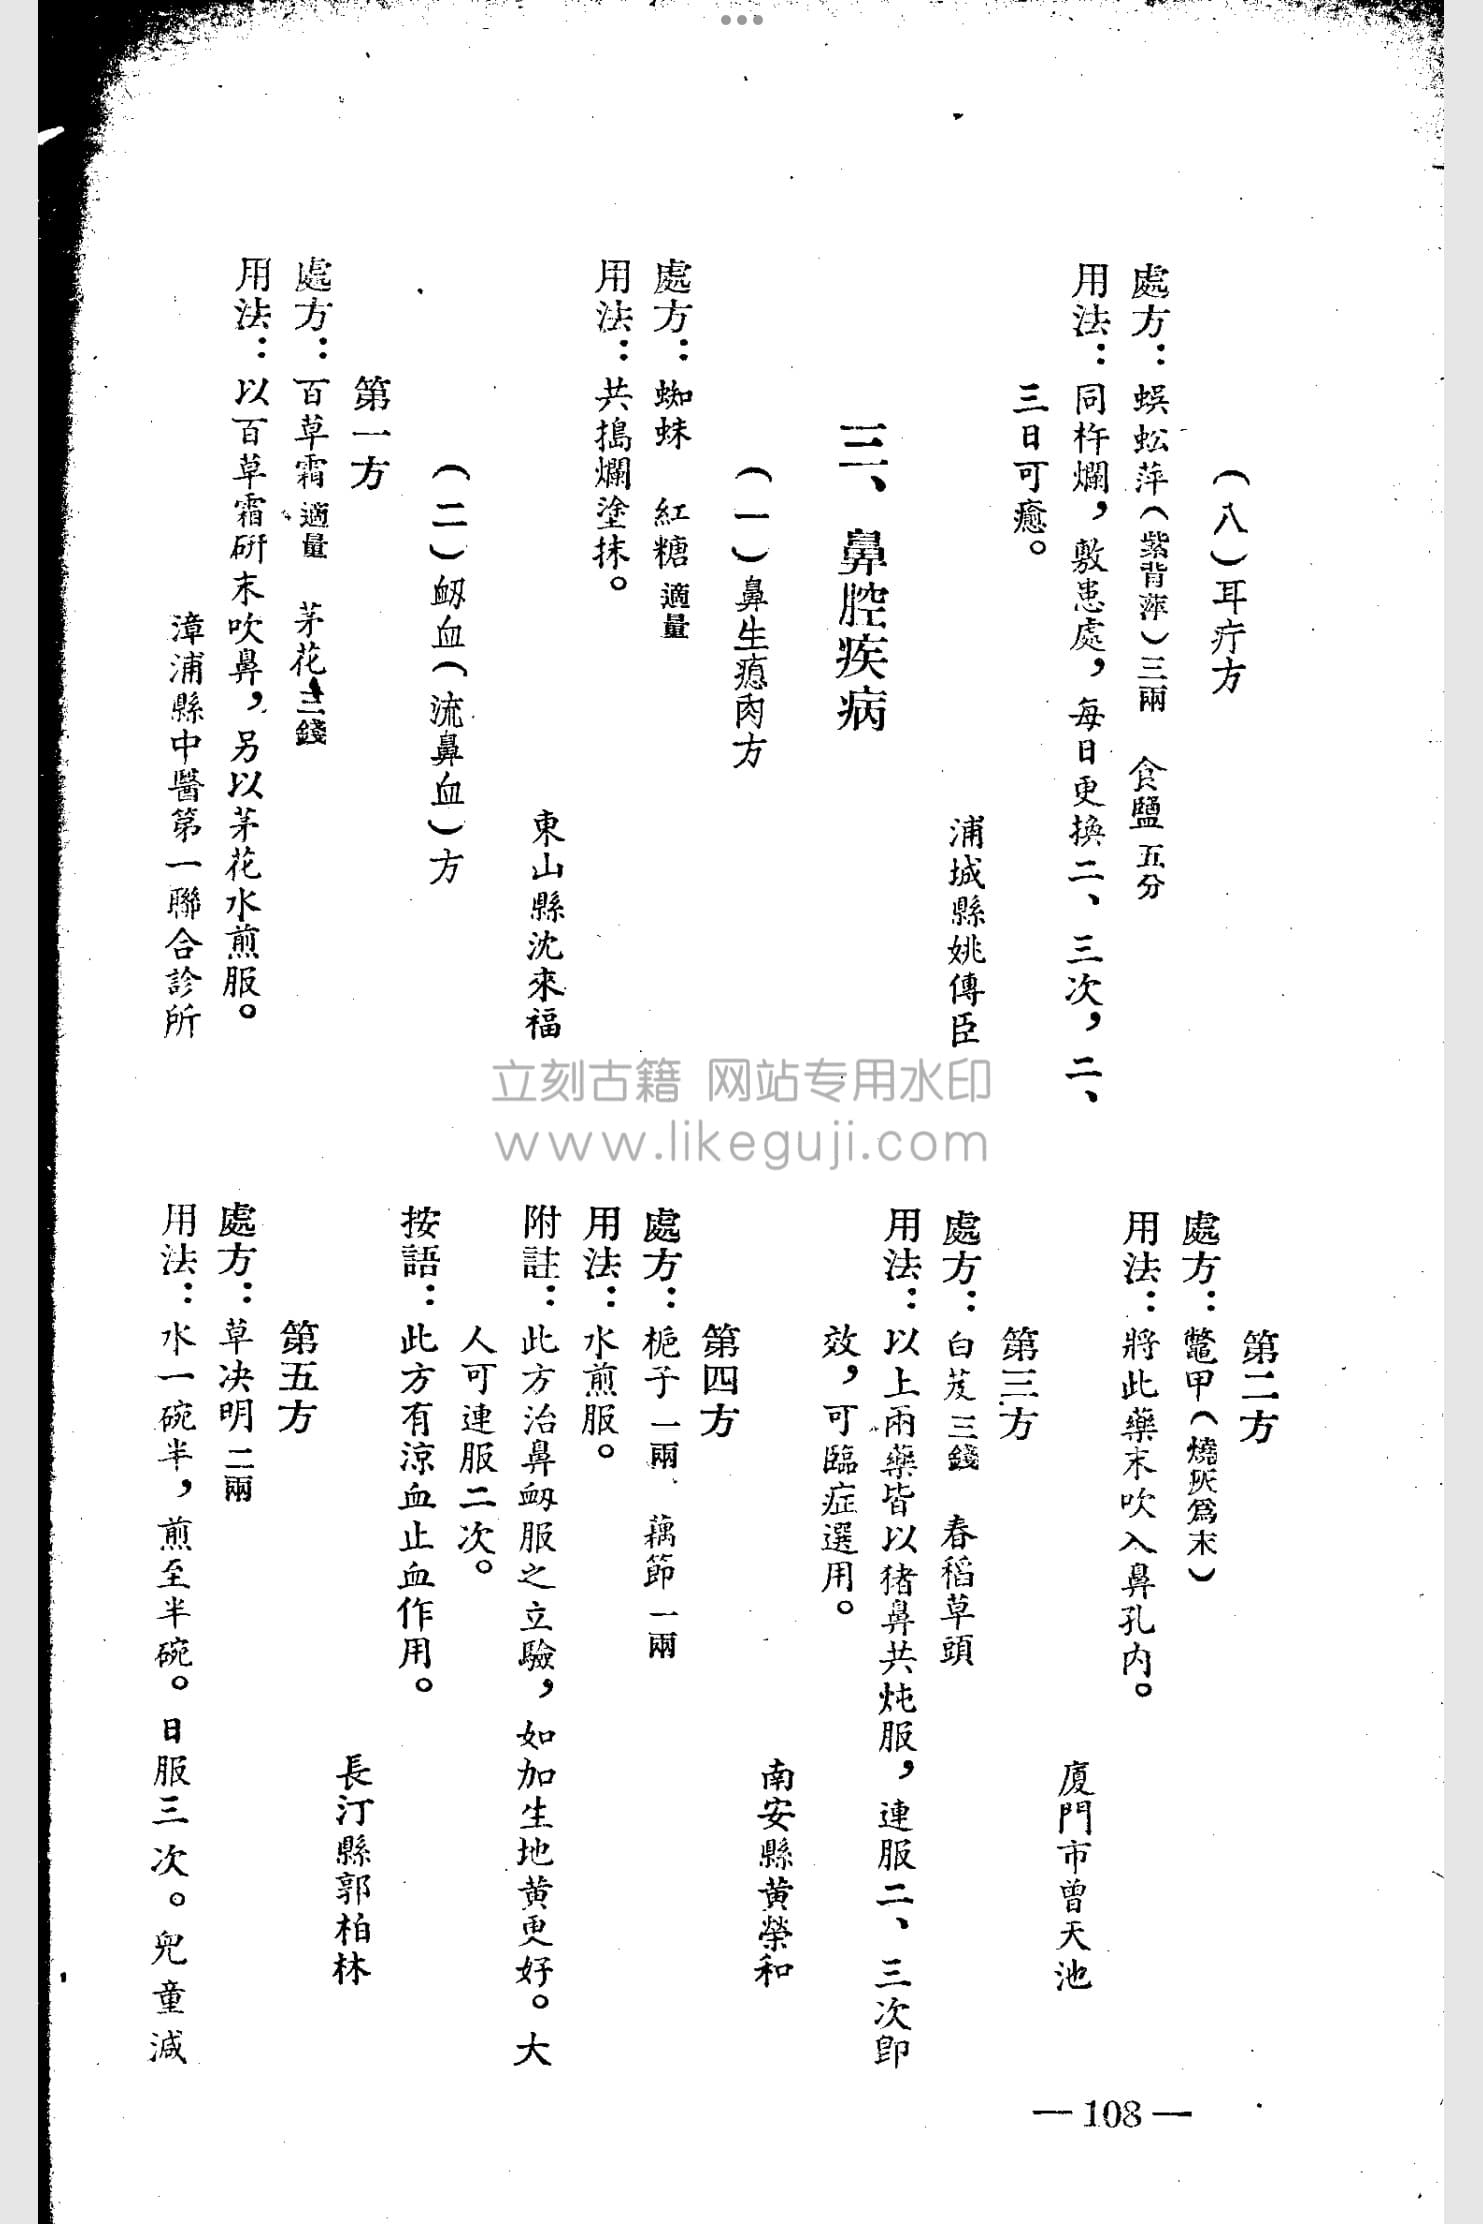 （八）耳疔方
處方：蜈蚣萍（紫背萍）三兩　食鹽五分
用法：同杵爛，敷患處，每日更換二、三次，二、
三日可癒。
浦城縣姚傳臣
三、鼻腔疾病
（一）鼻生瘜肉方
處方：蜘蛛　紅糖適量
用法：共搗爛塗抹。
東山縣沈來福
（二）衂血（流鼻血）方
第一方
處方：百草霜適量　茅花三錢
用法：以百草霜研末吹鼻，另以茅花水煎服。
漳浦縣中醫第一聯合診所
第二方
處方：鼈甲（燒灰爲末）
用法：將此藥末吹入鼻孔內。
廈門市曾天池
第三方
處方：白芨三錢　春稻草頭
用法：以上兩藥皆以猪鼻共炖服，連服二、三次卽
效，可臨症選用。
南安縣黄榮和
第四方
處方：梔子一兩　藕節一兩
用法：水煎服。
附註：此方治鼻衂服之立驗，如加生地黄更好。大
人可連服二次。
按語：此方有涼血止血作用。
長汀縣郭柏林
第五方
處方：草决明二兩
用法：水一碗半，煎至半碗。日服三次。兒童減
—108—
立刻古籍 网站专用水印
www.likeguji.com